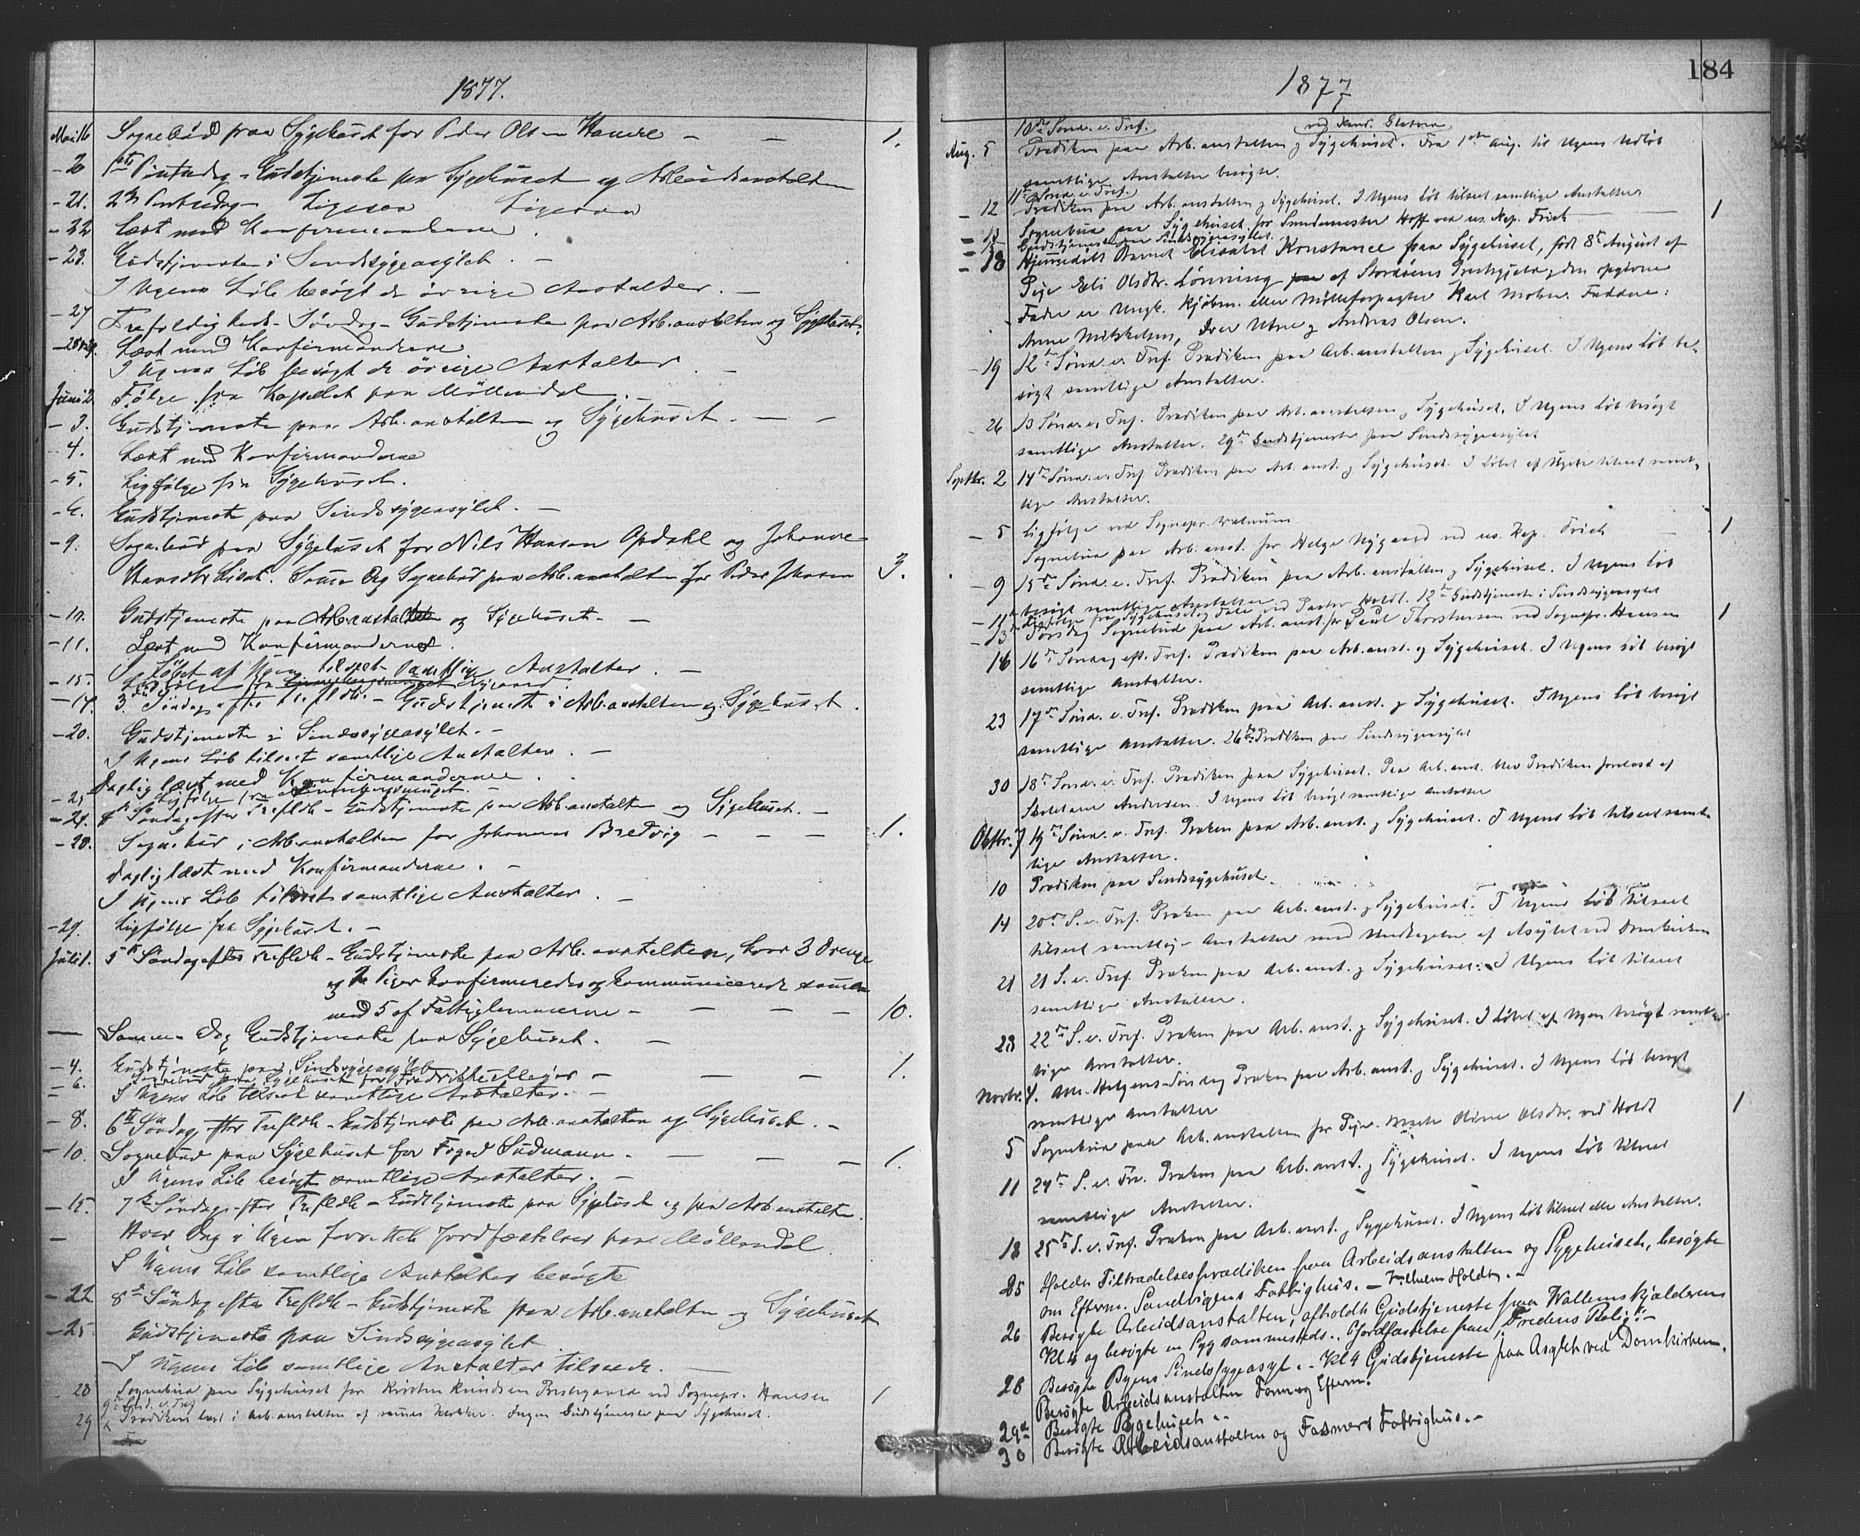 1877.
Mai 16 Sognebud paa Sygehuset for Peder Olsen - - 1.
- 20 1ste Pintsedag - Gudstjeneste paa Sygehuset og Arbeidsanstalten
- 21. 2den Pintsedag - Ligesaa Ligesaa
- 22 Læst med Konfirmanderne.
- 23. Gudstjeneste i Sindssygeasylet. -
I Ugens Løb besøgt de øvrige Anstalter. -
- 27 Trefoldigheds-Søndag - Gudstjeneste paa Arb.anstalten og Sygehuset.
- 28 Læst med Konfirmanderne
I Ugens Løb besøgt de øvrige Anstalter -
Juni 2. Følge fra Kapellet paa Møllendal. -
- 3. Gudstjeneste paa Arb.anstalten og Sygehuset. - -
- 4. Læst med Konfirmanderne
- 5. Ligfølge fra Sygehuset.
- 6. Gudstjeneste paa Sindssygeasylet. -
- 9. Sognebud paa Sygehuset for Nils Hansen Opdahl og Johanne
Hansdtr. Samme Dag Sognebud paa Arb.anstalten for Peder 3.
- 10. Gudstjeneste paa Arb.anstalten og Sygehuset. -
- 11. Læst med Konfirmanderne.
I Løbet af Ugen tilseet samtlige Anstalter. -
- 15. Ligfølge fra
- 17. 3die Søndag efter Trefldh. - Gudstjeneste i Arb.anstalten og Sygehuset.
- 20. Gudstjeneste i Sindssygeasylet. -
I Ugens Løb tilseet samtlige Anstalter. -
Daglig læst med Konfirmanderne.
- 25 Ligfølge fra
- 24. 4de Søndag efter Trefldh - Gudstjeneste paa Arb.anstalten og Sygehuset. -
- 28. Sognebud i Arb.anstalten for Johannes Bredvig - - - 1.
Daglig læst med Konfirmanderne. -
I Ugens Løb tilseet samtlige Anstalter. -
- 29. Ligfølge fra Sygehuset. -
Juli 1. 5te Søndag efter Trefldh - Gudstjeneste paa Arb.anstalten, hvor 3 Drenge
og 2 Piger konfirmeredes og kommunicerede sammen
med 5 af Fattiglemmerne - - - - 10.
Samme Dag Gudstjeneste paa Sygehuset. -
- 4. Gudstjeneste paa Sindssygeasylet
- 6. Sognebud paa Sygehuset for Fredrikke Meyer - - - 1.
I Ugens Løb tilseet samtlige Anstalter. -
- 8. 6te Søndag efter Trefldh - Gudstjeneste paa Arb.anstalten og Sygehuset. -
- 10. Sognebud paa Sygehuset for Foged Sudmann - - - - 1.
I Ugens Løb besøgt samtlige Anstalter. -
- 15. 7de Søndag efter Trefldh - Gudstjeneste paa Sygehuset og paa Arb.anstalten.
- Hver Dag i Ugen forrettet Jordfæstelser paa Møllendal.
I Ugens Løb samtlige Anstalter besøgte
- 22 8de Søndag efter Trefldh - Gudstjeneste paa Arb.anstalten og Sygehuset
- 25. Gudstjeneste paa Sindssygeasylet.
I Ugens Løb samtlige Anstalter tilseede. -
- 28 Sognebud paa Sygehuset for Kirsten Knudsen ved Sognepr. Hansen 1
9de Sønd. e. Tref
29 Prædiken læst i Arb.anstalten af sammes Klokker. Ingen Gudstjeneste paa Sygehuset.
184
1877
10de Sønd. e. Tref. ved Kand.
Aug. 5 Prædiken paa Arb.anstalten og Sygehuset. Fra 1ste Aug. til Ugens Udløb
samtlige Anstalter besøgte.
11te Sønd. e. Tref.
- 12 Prædiken paa Arb.anstalten og Sygehuset. I Ugens Løb tilseet samtlige Anstalter
- 13 Sognebud paa Sygehuset for Hoff ved res. Kap. Frich - - 1
Gudstjeneste paa Sindssygeasylet.
- 18 Hjemmedøbt Barnet Elisabet Konstance paa Sygehuset, født 8de August af
Pige Eli Olsdtr. Lønning af Stordøens Præstegjeld, den opgivne
Fader er Ungk. Kjøbm. eller Mølleforpagter Karl Mohr. Faddere:
Anne Mikkelsen, Iver Utne og Andreas Olsen.
- 19 12te Sønd. e. Tref. Prædiken paa Arb.anstalten og Sygehuset. I Ugens Løb be-
søgt samtlige Anstalter.
- 26 13 Sønd. e. Tref. Prædiken paa Arb.anstalten og Sygehuset. I Ugens Løb besøgt
samtlige Anstalter. 29de Gudstjeneste paa Sindssygeasylet
Septbr. 2 14de Sønd. e. Tref Prædiken paa Arb.anst. og Sygehuset. I Løbet af Ugen tilseet samt-
lige Anstalter.
- 5 Ligfølge ved Sognepr.
Sognebud paa Arb.anst. for Helge Nygaard ved res. Kap. Frich - 1
- 9 15de Sønd. e. Tref. Prædiken paa Arb.anstalten og Sygehuset. I Ugens Løb
besøgt samtlige Anstalter
- 11 Ligfølge fra Sygehuset og Tale ved Pastor Holdt. 12te Gudstjeneste i Sindssygeasylet
- 13 Torsdag Sognebud paa Arb.anst. for Paul Thorstensen ved Sognepr. Hansen 1
16 16de Søndag eft. Tref. Prædiken paa Arb.anst. og Sygehuset. I Ugens Løb besøgt
samtlige Anstalter.
23 17de Sønd. e. Tref. Prædiken paa Arb.anst. og Sygehuset. I Ugens Løb besøgt
samtlige Anstalter. 26de Prædiken paa Sindssygeasylet
30 18de Sønd. e. Tref. Prædiken paa Sygehuset. Paa Arb.anst. blev Prædiken forelæst af
Andersen. I Ugens Løb besøgt samtlige Anstalter
Oktbr. 7 19de Sønd. e. Tref. Præken paa Arb.anst. og Sygehuset. I Ugens Løb tilseet samt-
lige Anstalter.
10 Prædiken paa Sindssygehuset.
14 20de S. e. Tref. Præken paa Arb.anst. og Sygehuset. I Ugens Løb tilseet
tilseet samtlige Anstalter med Undtagelse af Asylet ved Domkirken
21 21 S. e. Tref. Præken paa Arb.anst. og Sygehuset. I Ugens Løb tilseet
samtlige Anstalter.
28 22de S. e. Tref. Præken paa Arb.anst. og Sygehuset. I Løbet af Ugen besøgt samt-
lige Anstalter.
Novbr. 4. Alle Helgens-Søndag Præken paa Arb.anst. og Sygehuset. I Ugens Løb besøgt
samtlige Anstalter
5 Sognebud paa Arb.anstalten for Pige Marte Oline Olsdtr. ved Holdt 1
11 24de S. e. Tre. Præken paa Arb.anst. og Sygehuset. I Ugens Løb tilseet
samtlige Anstalter.
18 25de S. e. Tref. Præken paa Arb.anst. og Sygehuset. I Ugens Løb tilseet alle Anstalter.
25 Holdt Tiltrædelsesprædiken paa Arbeidsanstalten og Sygehuset, besøgte
om Efterm. Sandvigens Fattighus. - Vilhelm Holdt. -
26 Besøgte Arbeidsanstalten, afholdt Gudstjeneste paa Wallemskjælderen
Kl 4 og besøgte en Syg sammesteds. Jordfæstelse paa "Fredens Bolig". -
28 Besøgte Byens Sindssygeasyl. - Kl 4 Gudstjeneste paa Asylet ved Domkirken.
Besøgte Arbeidsanstalten Form. og Efterm.
29de Besøgte Sygehuset. -
30 Besøgte Arbeidsanstalten og Fattighus. -